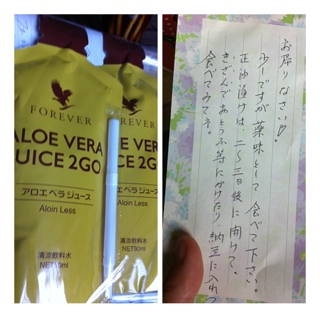 FOREVER
ALOE VERA
JUICE 2GO
アロエベラジュース
Aloin Less
清涼飲料水
FOREVER
ALOE VERA
UICE 2GO
アロエベラジュース
Aloin Less
清涼飲料水
NET90ml
お帰りなさい!
ですが 薬味として 食べて下さい。
正油漬けは、二~三日後に開けて、
きざんであとうふ等にかけたり 納豆に入れて
食べてみてネ。